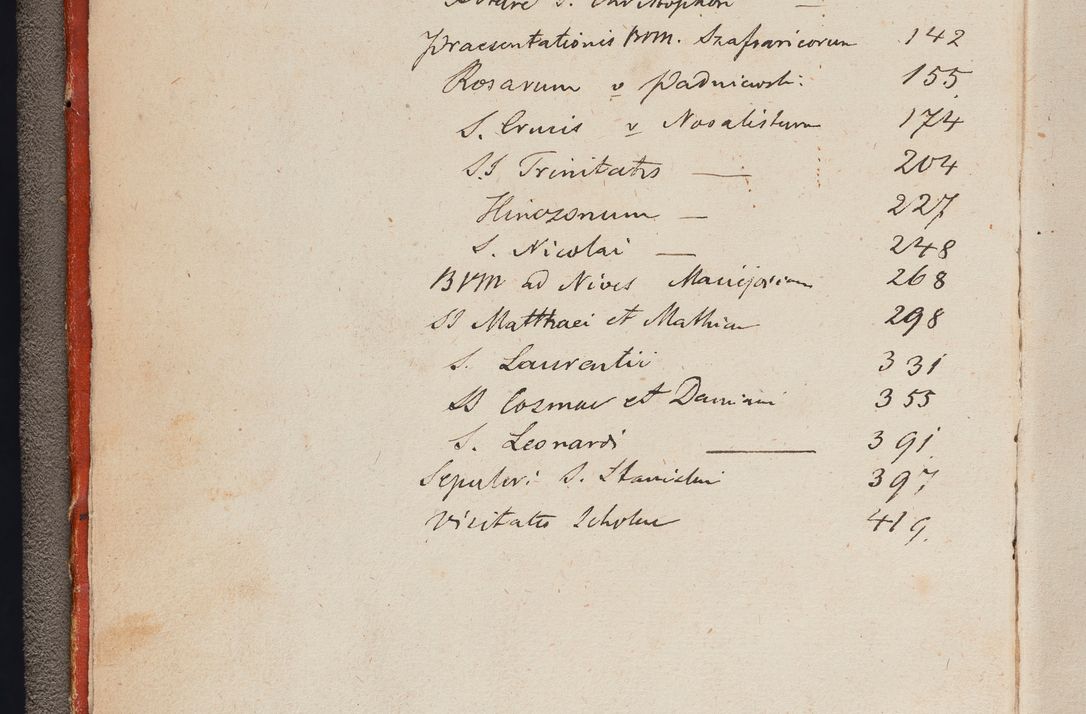 S. Christophori —
Praesentationis BVM. Szafraricorum 142
Rosarum v Padniewski: 155
S. Crucis v Nosalistum 174
S.S Trinitatis — 204
Hinczonum — 227
S. Nicolai — 248
BVM ad Nives Maciejovium 268
SS Matthaei et Mathiae 298
S. Laurentii 331
SS Cosmae et Damiani 355
S. Leonardi — 391
Sepulcri S. Stanislai 397
Visitatio Scholae 419.